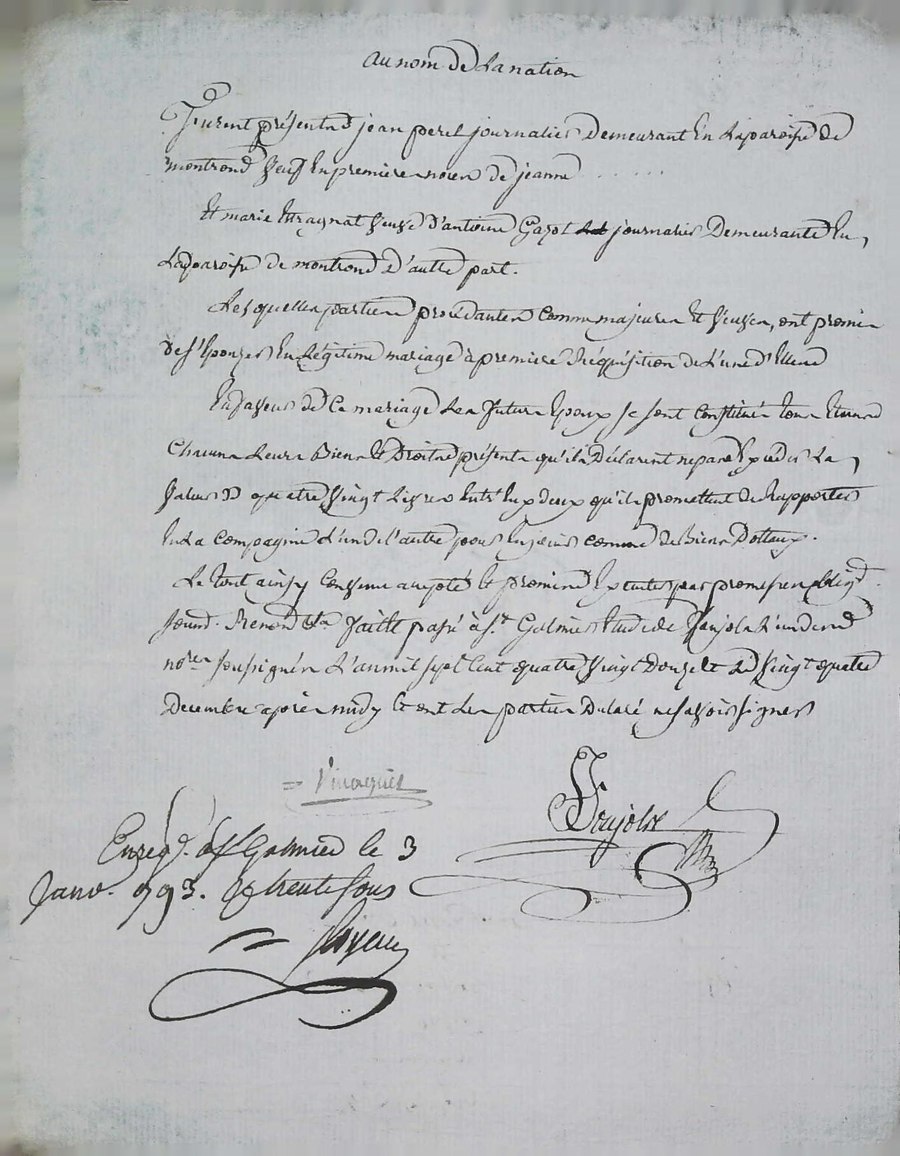 au nom de la nation
furent présents jean perel journalier Demeurant En La paroisse de
montrond Veuf En premiere noces de jeanne ......
Et marie Veuve d'antoine Gazot journalier Demeurante En
La paroisse de montrond d'autre part.
Lesquelles parties procédantes comme majeures Et Veuves, ont promis
de s'Epouser En Légitime mariage à premiere Réquisition de L'une d'Elles
En faveur de Ce mariage Les futurs Epoux se sont Constitués tous Et uns
Chacuns Leurs Biens Et Droits présents qu'ils Déclarent ne pas Excéder La
Valeur de quatre Vingt Livres Entr' Eux deux qu'ils promettent de Rapporter
En La Compagnie L'un de l'autre pour En jouir comme de Biens Dotaux.
Le tout ainsy Convenu accepté Et promis Exécuter par promesses oblig.
soumd. Renond. Et a Jaitte passé à st. Galmier Etude de Vanjolx L'un des
nores soussignés L'an mil sept Cent quatre Vingt Douze Et Le Vingt quatre
Decembre après midy Et ont Les parties Déclaré ne savoir signer
Enregd. à st Galmier le 3
Janv. 793. trente sous